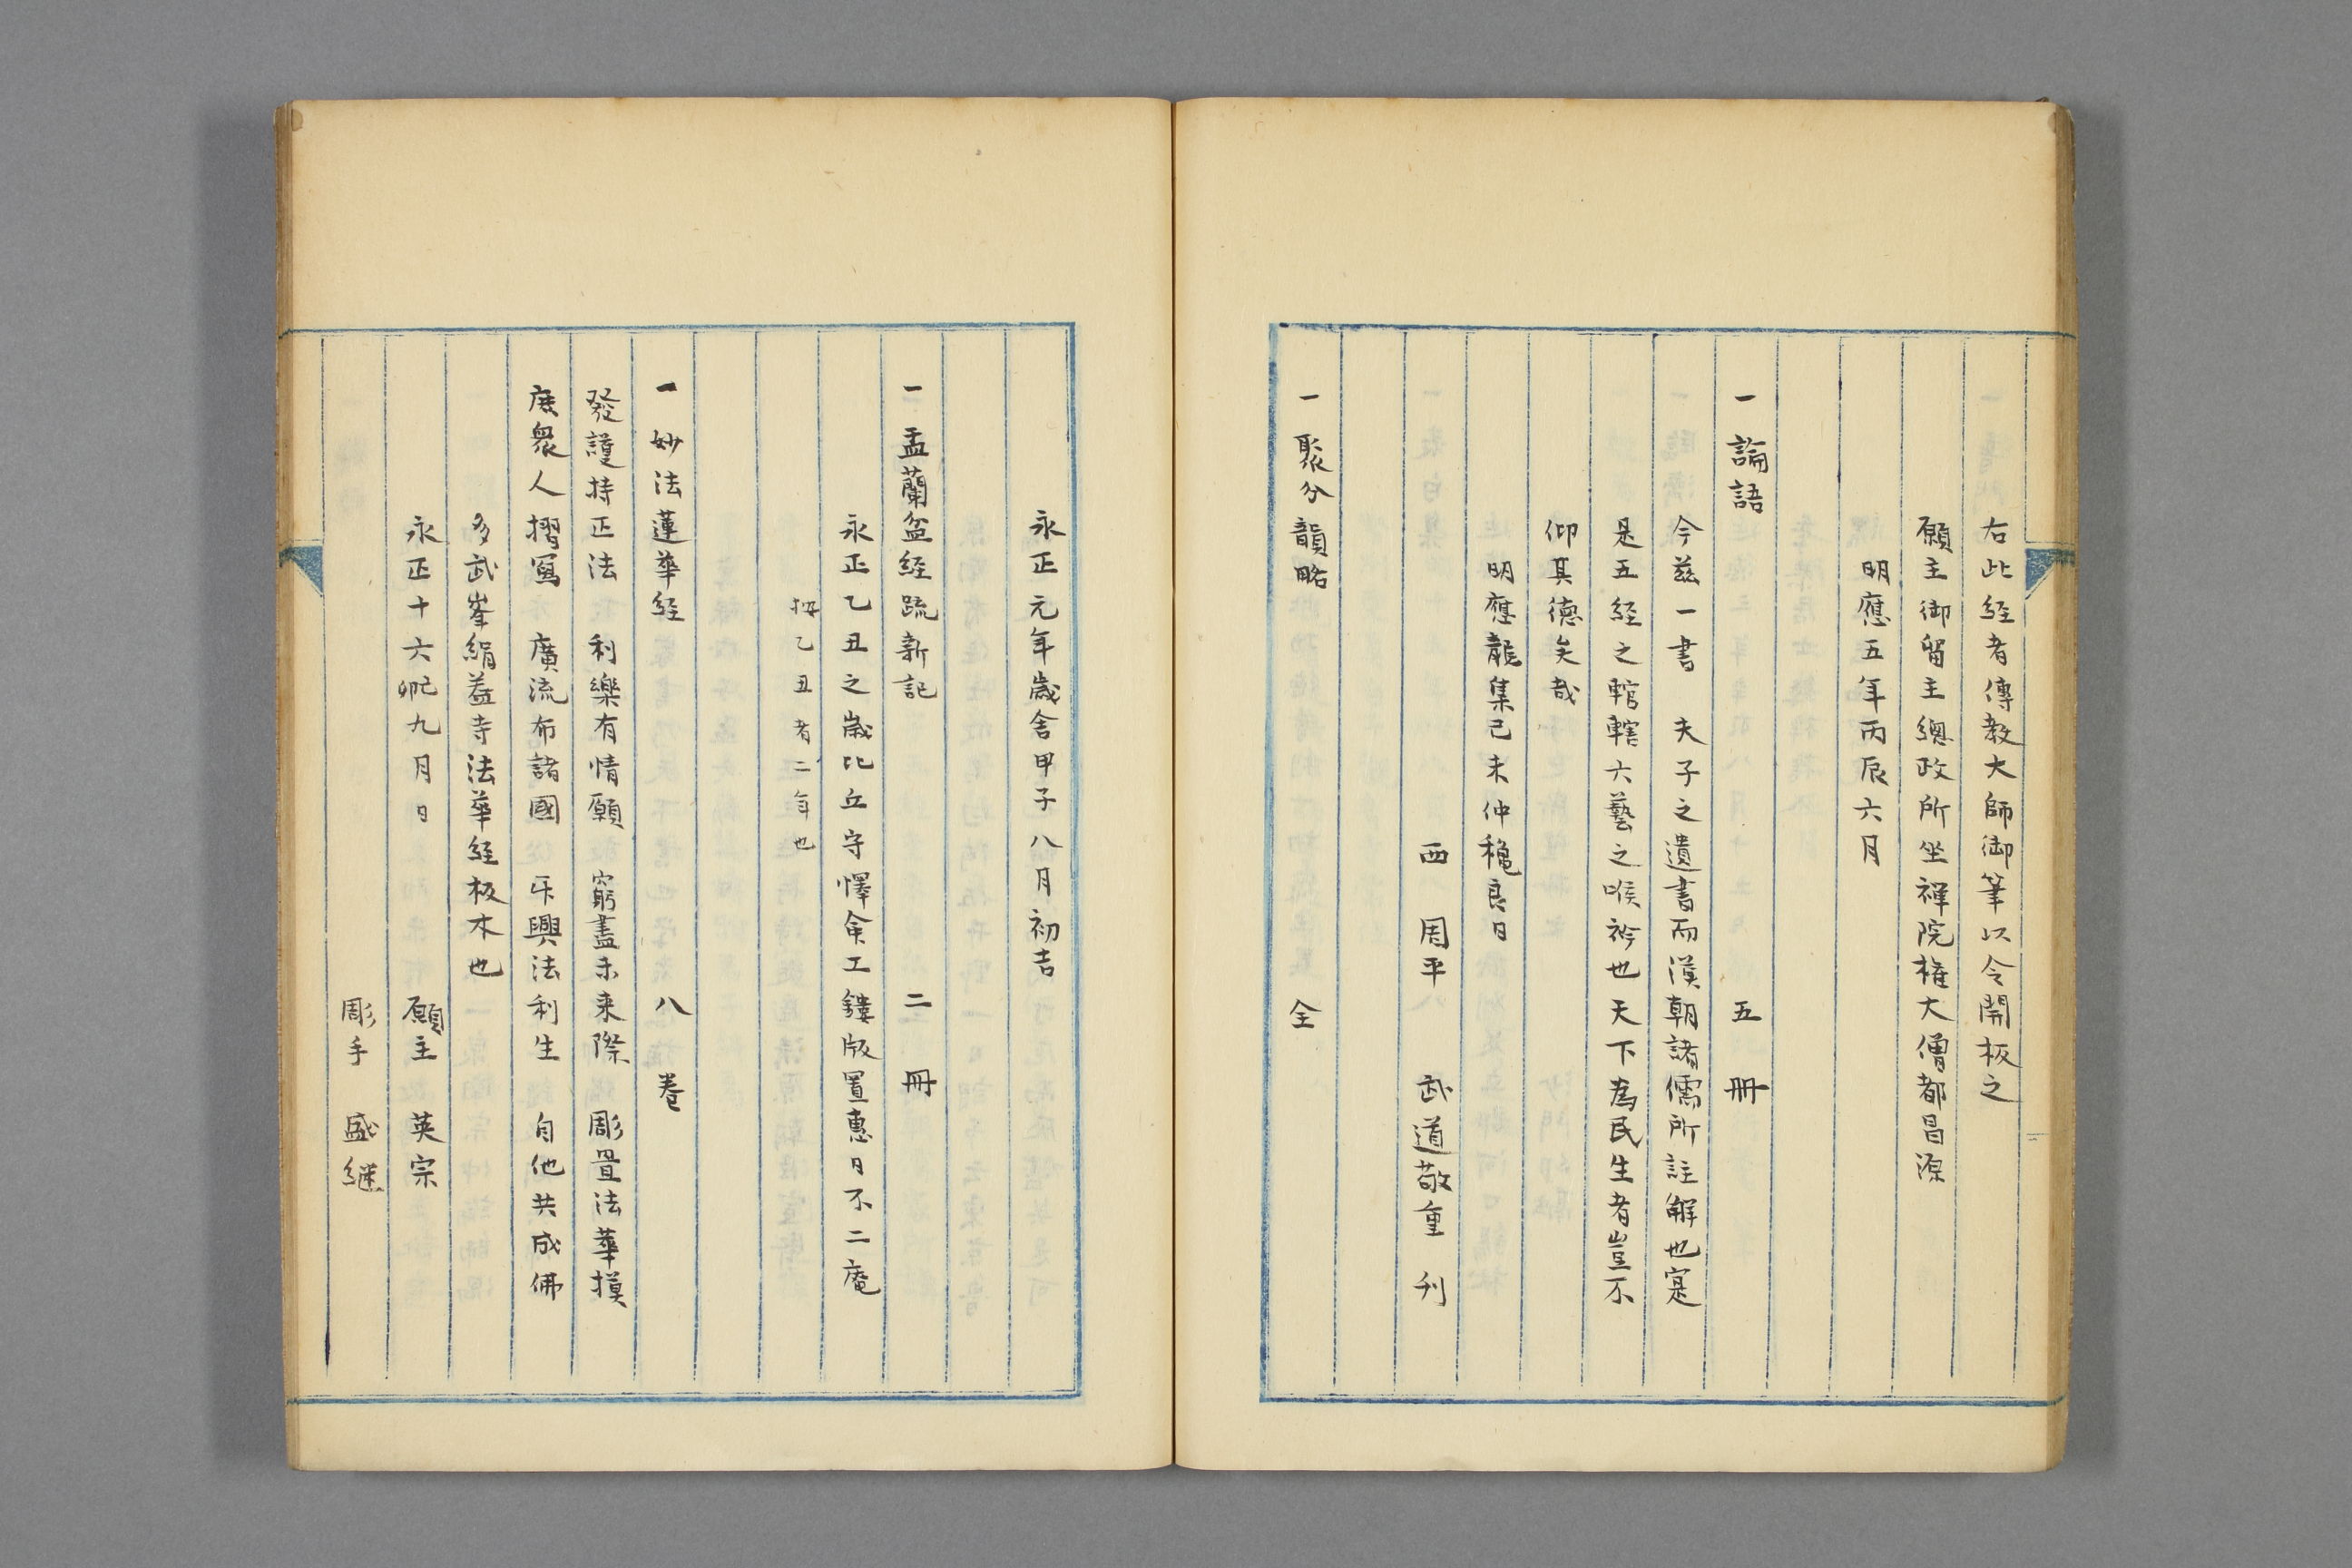 右此経者傳教大師御筆以令開板之
願主御留主總政所坐禪院権大僧都昌源
明應五年丙辰六月
一論語 五冊
今茲一書 夫子之遺書而漢朝諸儒所註解也寔
是五経之輨轄六藝之喉衿也天下為民生者豈不
仰其德矣哉
明應龍集己未仲穐良日
西 周平 武道敬重 刋
一聚分韻略 全
永正元年歳舎甲子八月初吉
一盂蘭盆経䟽新記 二冊
永正乙丑之歳比丘守懌命工鏤版置惠日不二庵
按乙丑者二年也
一妙法蓮華経 八巻
發護持正法 利樂有情願 窮盡未来際 彫畳法華摸
庶衆人摺寫 廣流布諸國 乐興法利生 自他共成佛
多武峯絹蓋寺法華経板木也
永正十六己卯九月日 願主 英宗
彫手 盛継